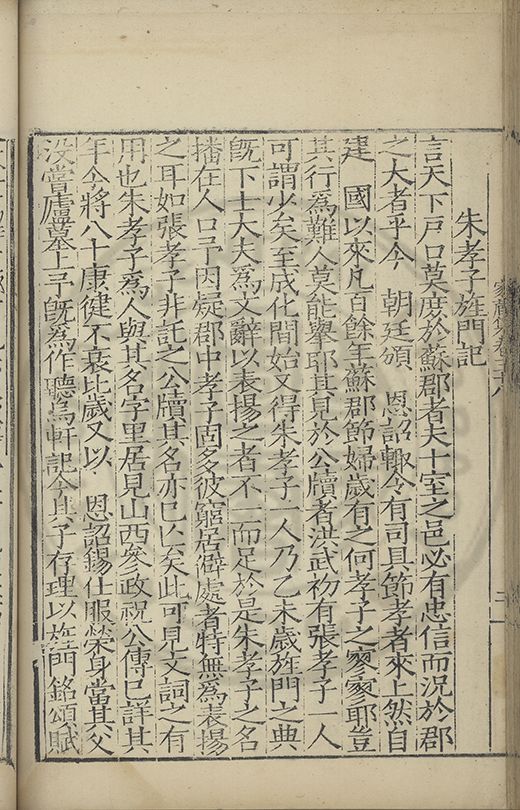 家藏集卷三十八
朱孝子旌門記
言天下戶口莫庶於蘇郡者夫十室之邑必有忠信而況於郡
之大者乎今 朝廷頒 恩詔輙令有司具節孝者來上然自
建 國以來凡百餘年蘇郡節婦歲有之何孝子之寥寥耶豈
其行為難人莫能舉耶其見於公牘者洪武初有張孝子一人
可謂少矣至成化間始又得朱孝子一人乃乙未歲旌門之典
旣下士大夫為文辭以表揚之者不一而足於是朱孝子之名
播在人口予因疑郡中孝子固多彼窮居僻處者特無為表揚
之耳如張孝子非託之公牘其名亦已亡矣此可見文詞之有
用也朱孝子為人與其名字里居見山西參政祝公傳已詳其
年今將八十康健不衰比歲又以 恩詔錫仕服榮身當其父
沒嘗廬墓上予旣為作聽烏軒記今其子存理以旌門銘頌賦